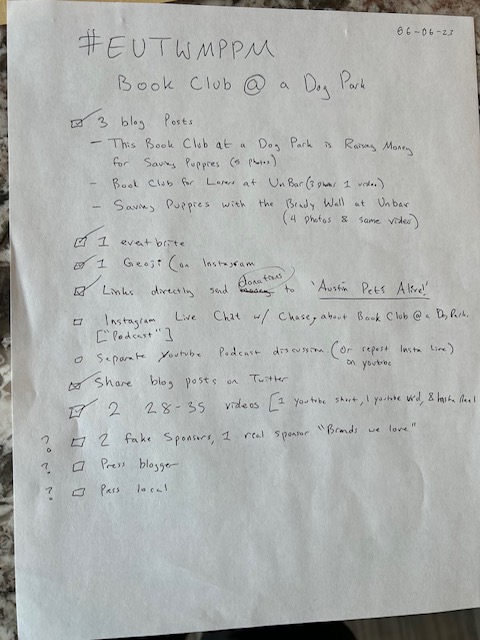 06-06-23
#EUTWMPPM
Book Club @ a Dog Park
3 blog posts
- This Book Club at a Dog Park is Raising Money
for Saving Puppies (5 photos)
- Book Club for Loners at UnBar (3 photos 1 video)
- Saving Puppies with the Brady Wall at Unbar
(4 photos & same video)
1 eventbrite
1 Geoji (on Instagram
donations
Links directly send to 'Austin Pets Alive!'
Instagram Live Chat w/ Chase, about Book Club @ a Dog Park.
["Podcast"]
Separate Youtube Podcast discussion (or repost Insta Live)
on youtube
Share blog posts on Twitter
2 28-35 videos [1 youtube short, 1 youtube vid, & Insta Reel
? 2 fake Sponsors, 1 real sponsor "Brands we love"
? Press blogger
? Press local